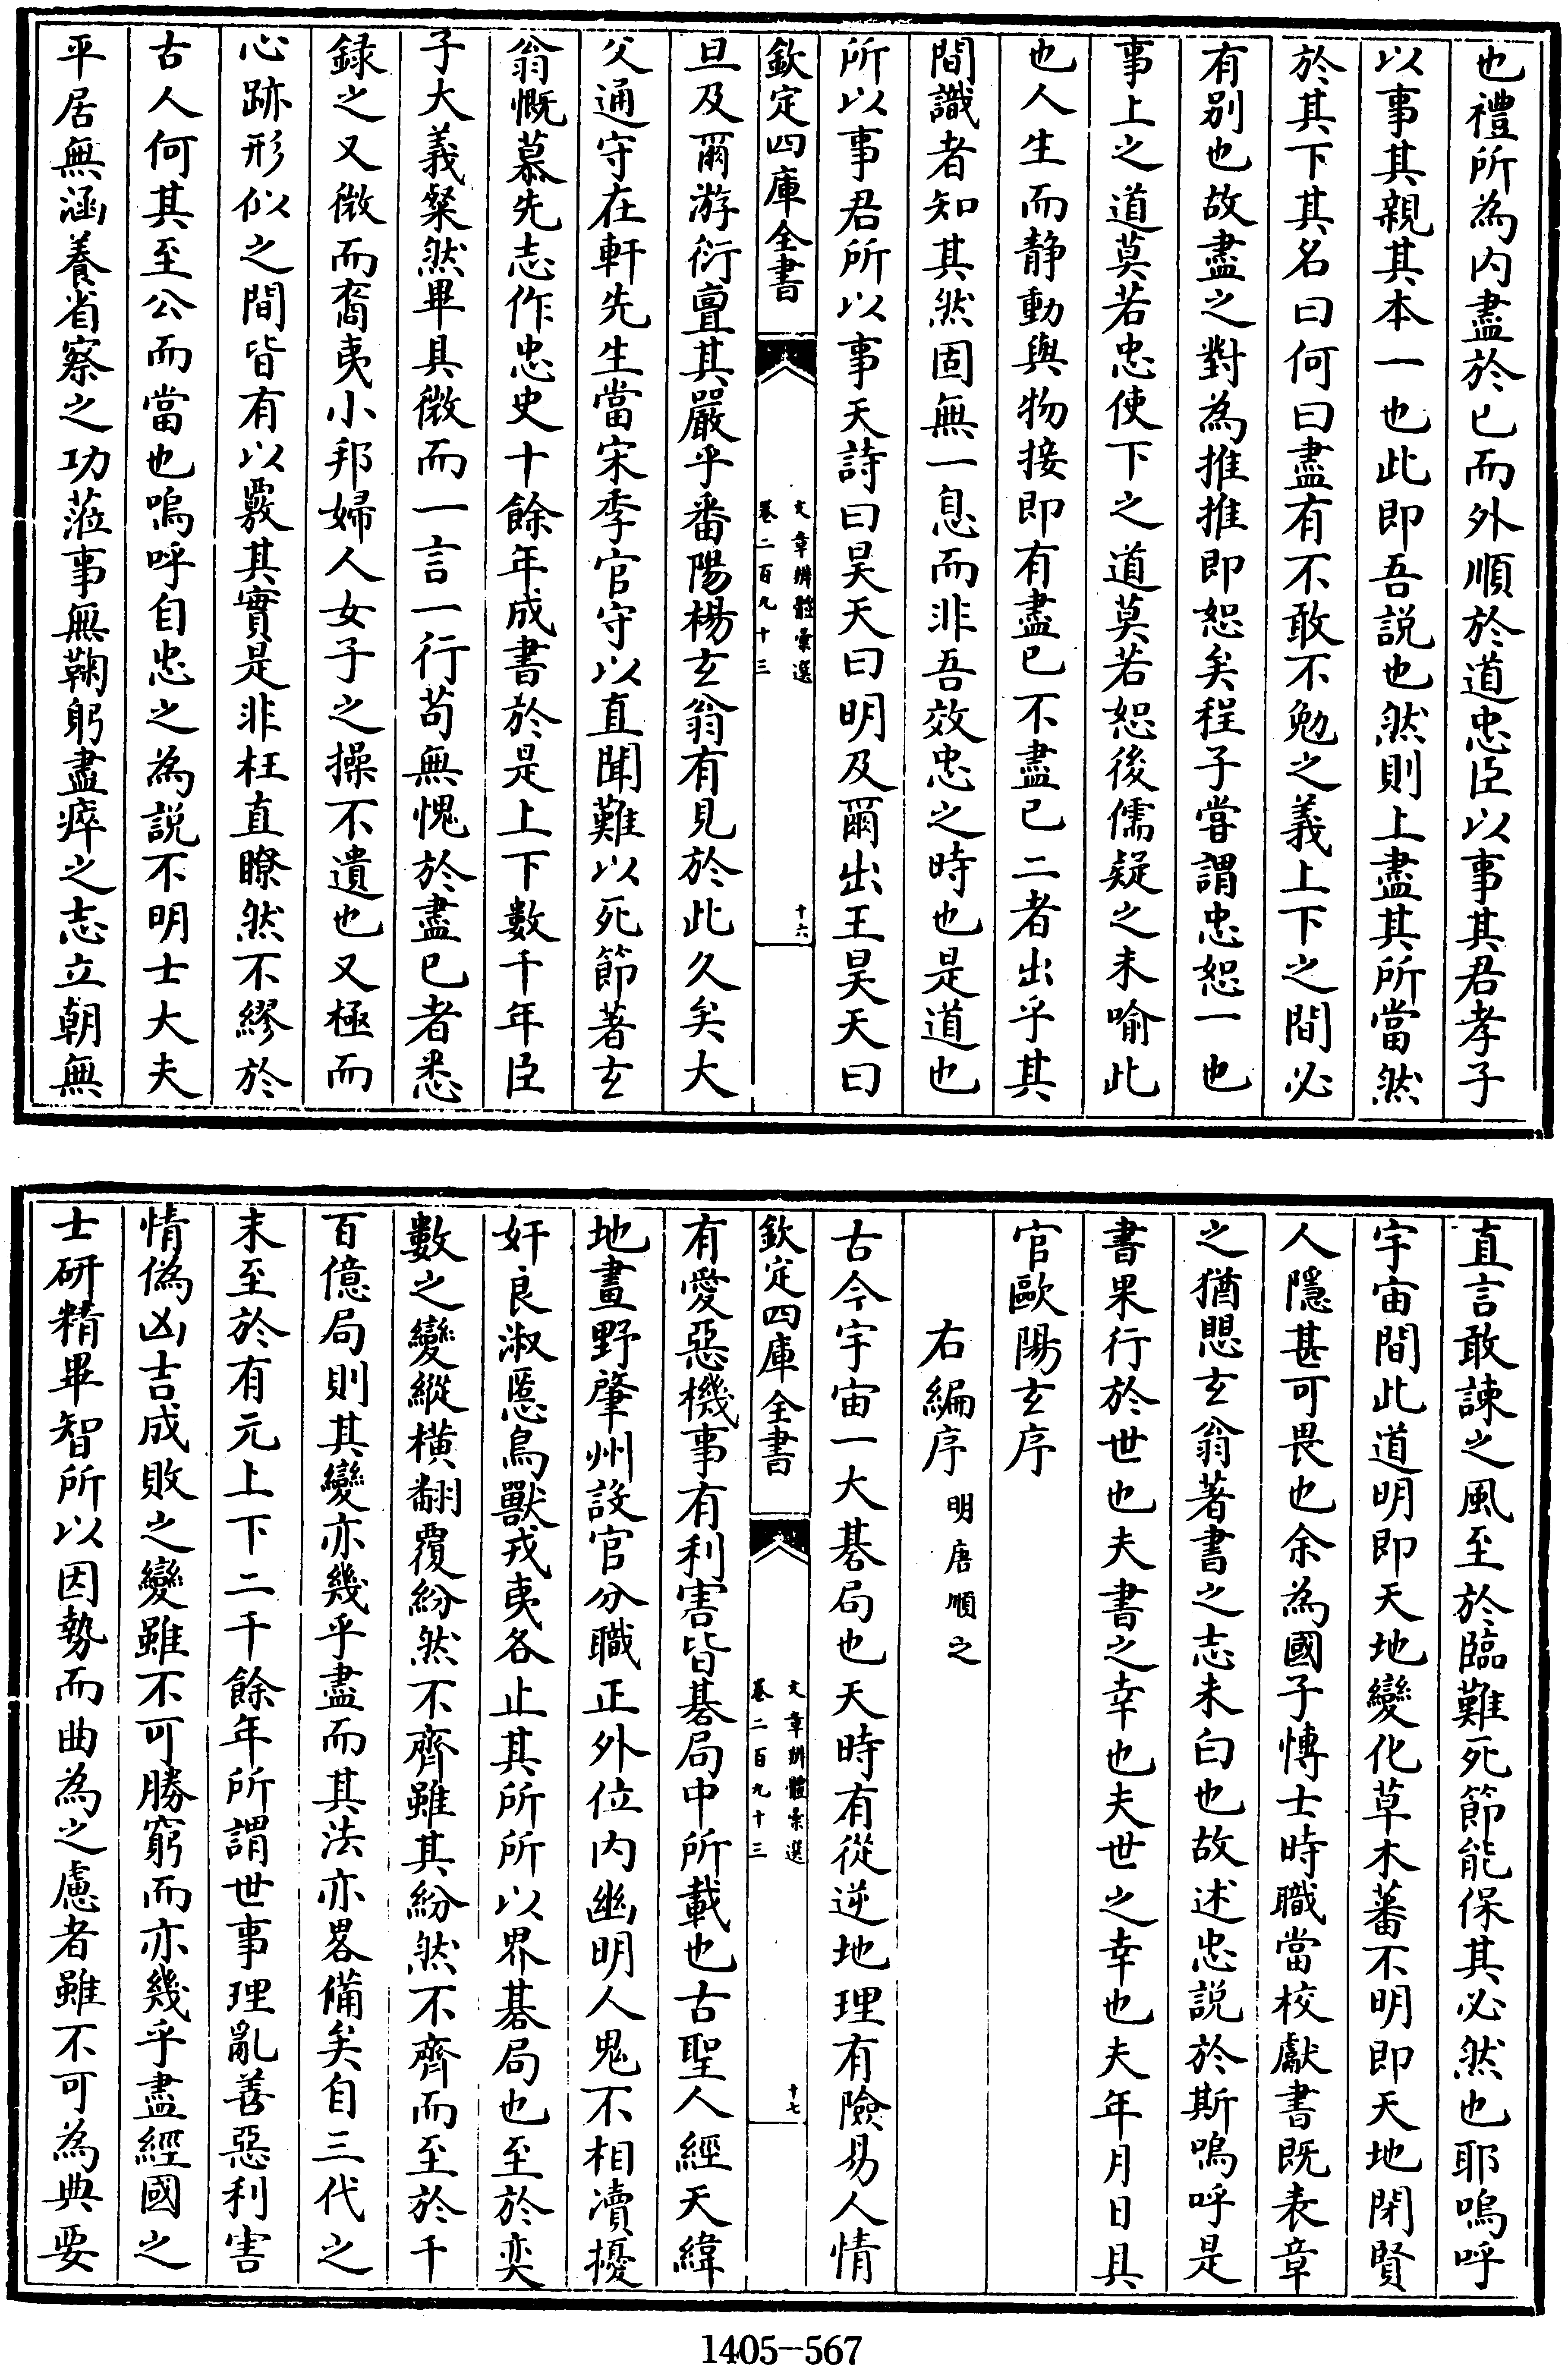 也禮所為内盡於已而外順於道忠臣以事其君孝子
以事其親其本一也此即吾説也然則上盡其所當然
於其下其名曰何曰盡有不敢不勉之義上下之間必
有别也故盡之對為推推即恕矣程子嘗謂忠恕一也
事上之道莫若忠使下之道莫若恕後儒疑之未喻此
也人生而静動與物接即有盡已不盡已二者出乎其
間識者知其然固無一息而非吾效忠之時也是道也
所以事君所以事天詩曰昊天曰明及爾出王昊天曰
欽定四庫全書
文章辨體彙選
卷二百九十三
十六
旦及爾游衍亶其嚴乎番陽楊玄翁有見於此久矣大
父通守在軒先生當宋季官守以直聞難以死節著玄
翁慨慕先志作忠史十餘年成書於是上下數千年臣
子大義粲然畢具微而一言一行茍無愧於盡已者悉
録之又微而裔夷小邦婦人女子之操不遺也又極而
心跡形似之間皆有以覈其實是非枉直瞭然不繆於
古人何其至公而當也嗚呼自忠之為説不明士大夫
平居無涵養省察之功蒞事無鞠躬盡瘁之志立朝無
直言敢諫之風至於臨難死節能保其必然也耶嗚呼
宇宙間此道明即天地變化草木蕃不明即天地閉賢
人隱甚可畏也余為國子愽士時職當校獻書既表章
之猶思玄翁著書之志未白也故述忠説於斯嗚呼是
書果行於世也夫書之幸也夫世之幸也夫年月日具
官歐陽玄序
右編序 明唐順之
古今宇宙一大碁局也天時有從逆地理有險易人情
欽定四庫全書
文章辨體彙選
卷二百九十三
十七
有愛惡機事有利害皆碁局中所載也古聖人經天緯
地畫野肇州設官分職正外位内幽明人鬼不相凟擾
奸良淑慝鳥獸戎夷各止其所所以界碁局也至於奕
數之變縱橫翻覆紛然不齊雖其紛然不齊而至於千
百億局則其變亦幾乎盡而其法亦畧備矣自三代之
末至於有元上下二千餘年所謂世事理亂善惡利害
情偽凶吉成敗之變雖不可勝窮而亦幾乎盡經國之
士研精畢智所以因勢而曲為之慮者雖不可為典要
1405-567